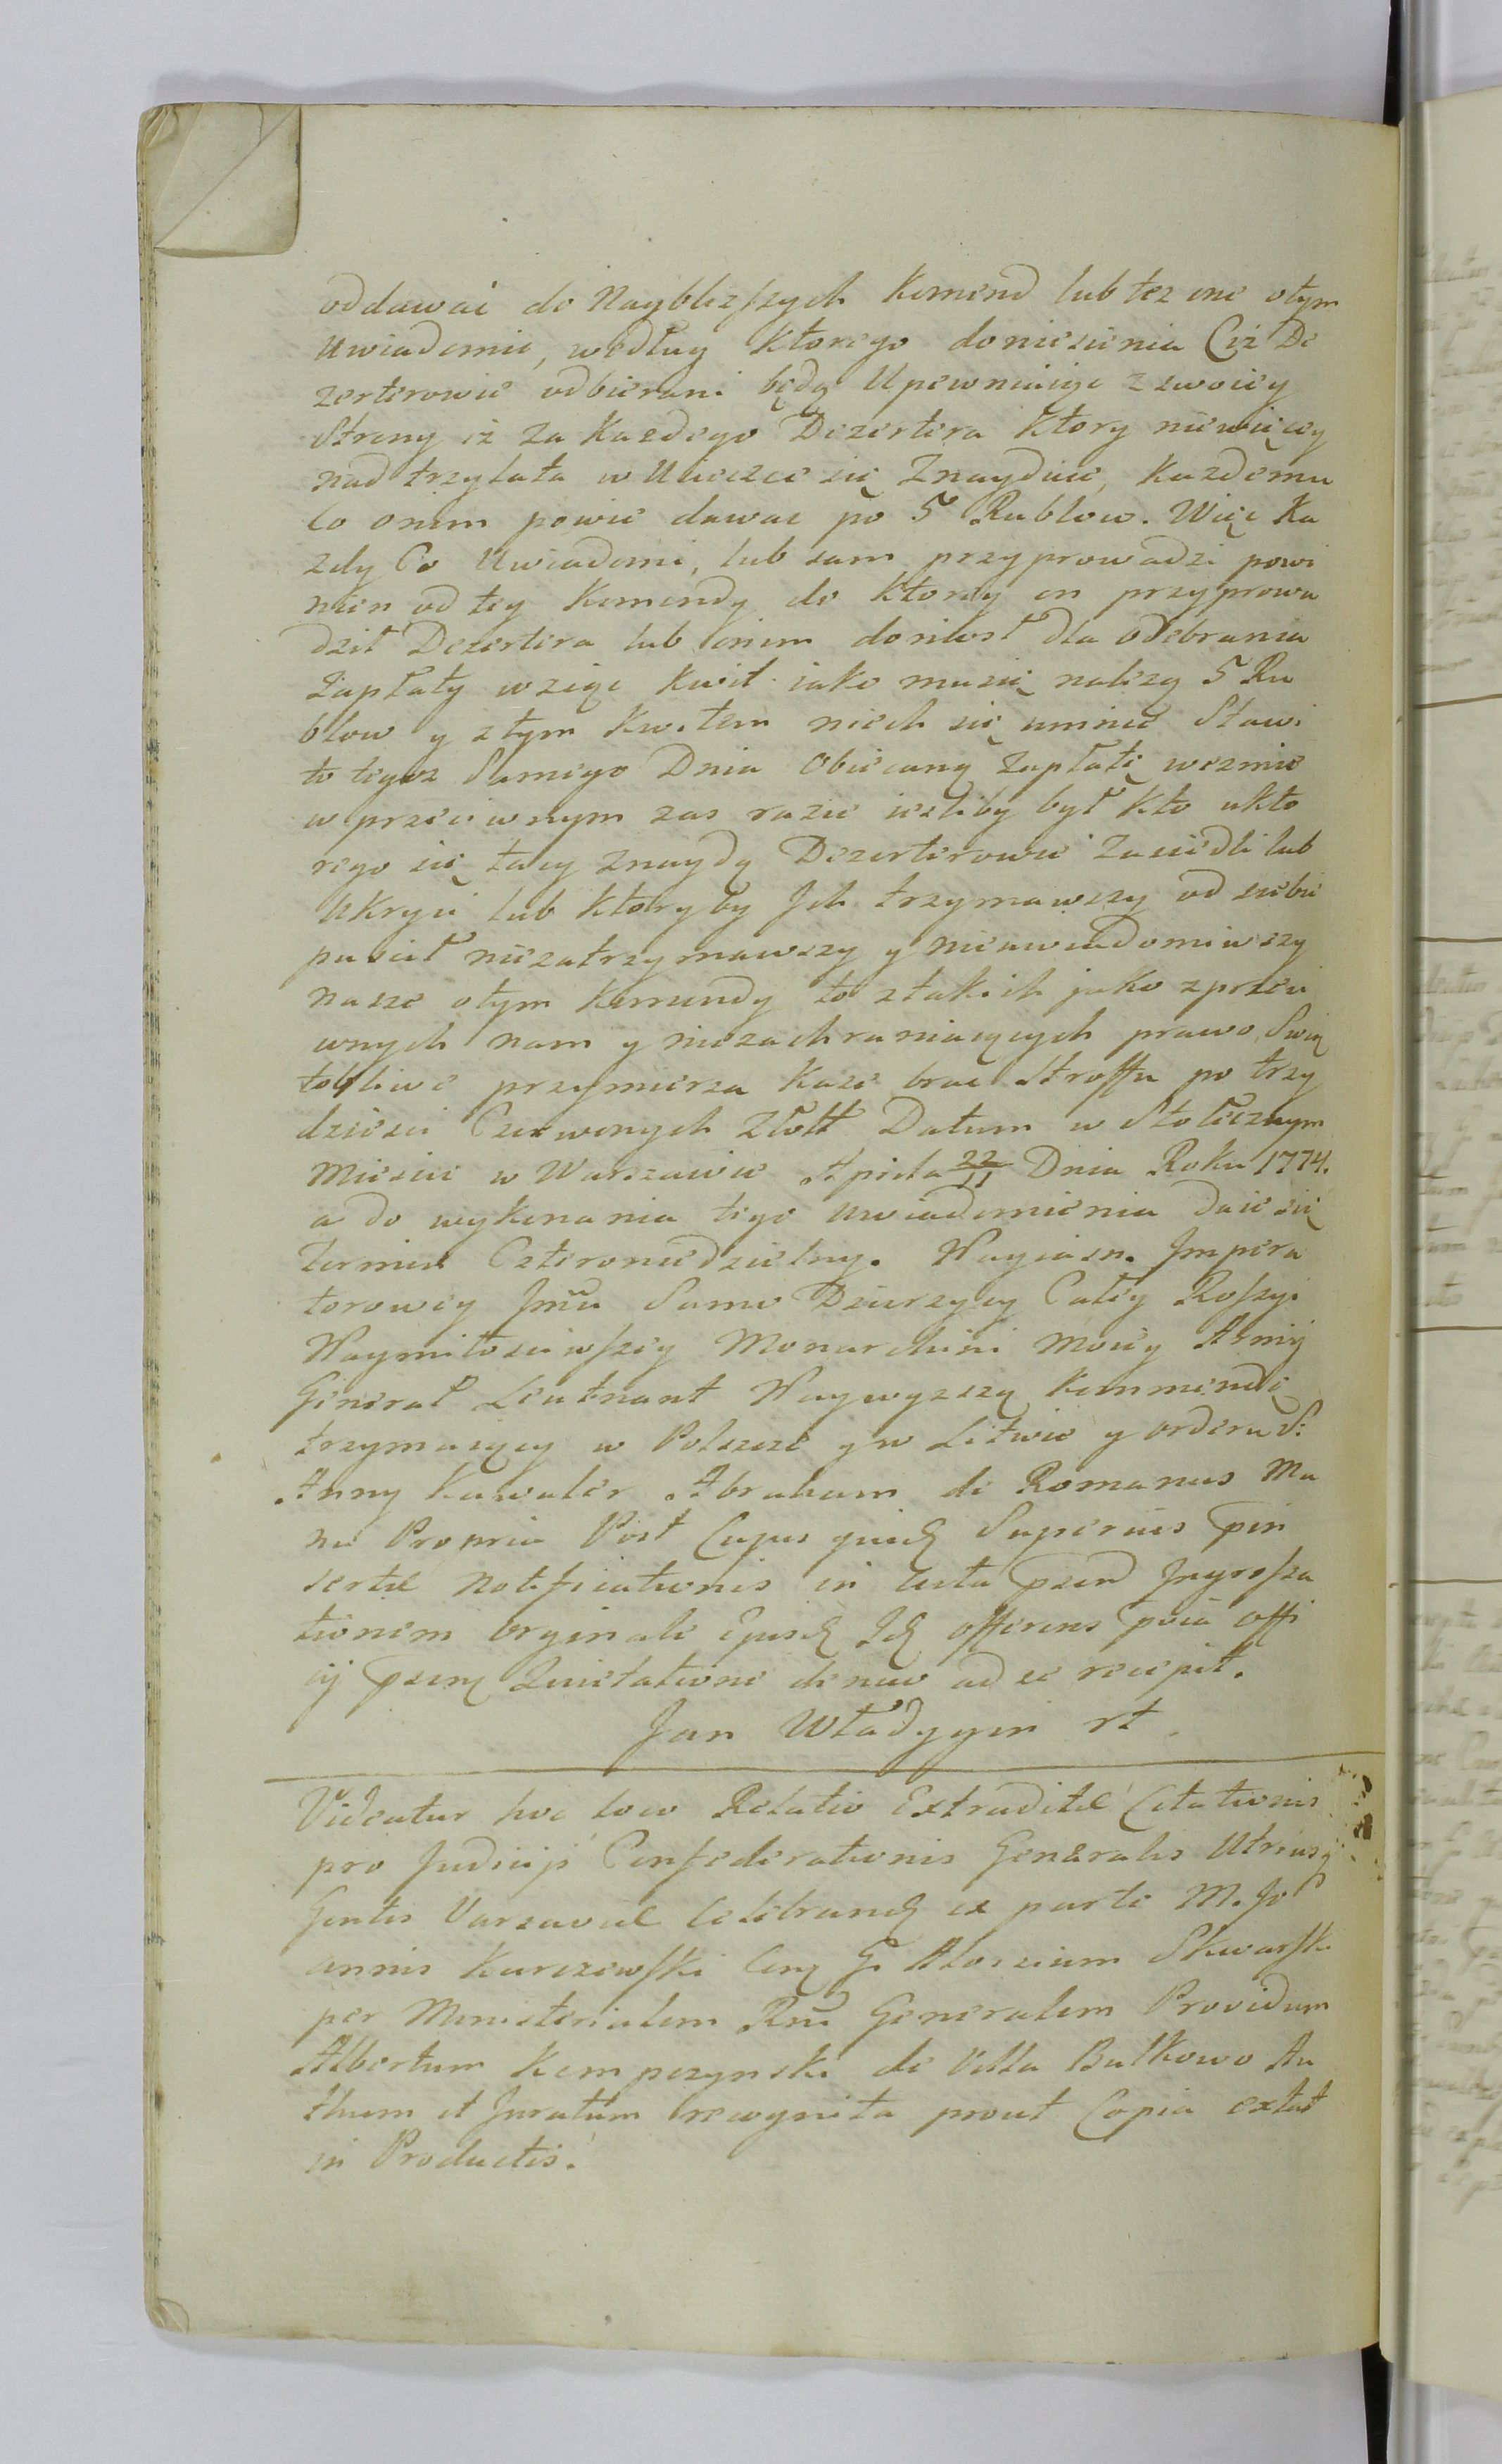 oddawać do Naybliższych Komend lub tez one otym
Uwiadomić, według ktorego doniesienia Ciż De
zerterowie odbierani będą Upewniaiąc z swoiey
Strony iż za Kazdego Dezertera ktory niewięcey
nad trzylata w Ucieczce się Znayduie, kazdemu
Co onim powie dawać po 5 Rublow. Więc Ka
zdy Co Uwiadomi, lub sam przyprowadzi powi
nien od tey Komendy do ktorey on przyprowa
dził Dezertera lub onim doniosł dla odebrania
Zapłaty wziąć kwit iako mu się nalezą 5 Ru
blow y ztym Kwitem niech się umnie Stawi
to tegoz Samego Dnia Obiecaną Zapłatę wezmie
w przeciwnym zas razie iezliby był kto ukto
rego się tacy Znaydą Dezerterowie Zasiedli lub
Ukryci lub ktoryby Jch trzymawszy od siebie
puscił niezatrzymawszy y nieuwiadomiwszy
nasze otym Komendy to ztakich jako zprzeci
wnych nam y niezachraniaiących prawo Swią
tobliwe przymierza Każe brać Stroffu po trzy
dziesci Czerwonych Złott Datum w Stołecznym
Miescie w Warszawie Aprila 22/11 Dnia Roku 1774.
a do wykonania tego uwiadomienia daie się
termin Czteroniedzielny. Nayiasn. Impera
torowey Jmci Samo Dzierzący Całey Roszyi
Naymiłosciwszey Monarchini Moiey Armij
Generał Leutnant Naywyzszą Kommendę
trzymaiący w Polszcze y w Litwie y orderu S:
Anny Kawaler Abraham de Romanus Ma
nu Propria Post Cujus quid Superius pin
sertae Notificationis in acta psend Jngrossa
tionem orginale Ejusd Id offerens pncia offi
cij psenq Quietatione denuo ad se recepit.
Jan Władygyin rt
Videatur hoc loco Relatio Extraditae Citationis
pro Judicijs Confederationis Generalis Utriusq
Gentis Varsaviae Celebrand ex parte M. Jo
annis Kurczewski Cenq G. Aloszium Skwarski
per Ministerialem Rni Generalem Providum
Albertum Kempczynski de Villa Bulkowo Au
thum et Juratum recognita prout Copia extat
in Productis.